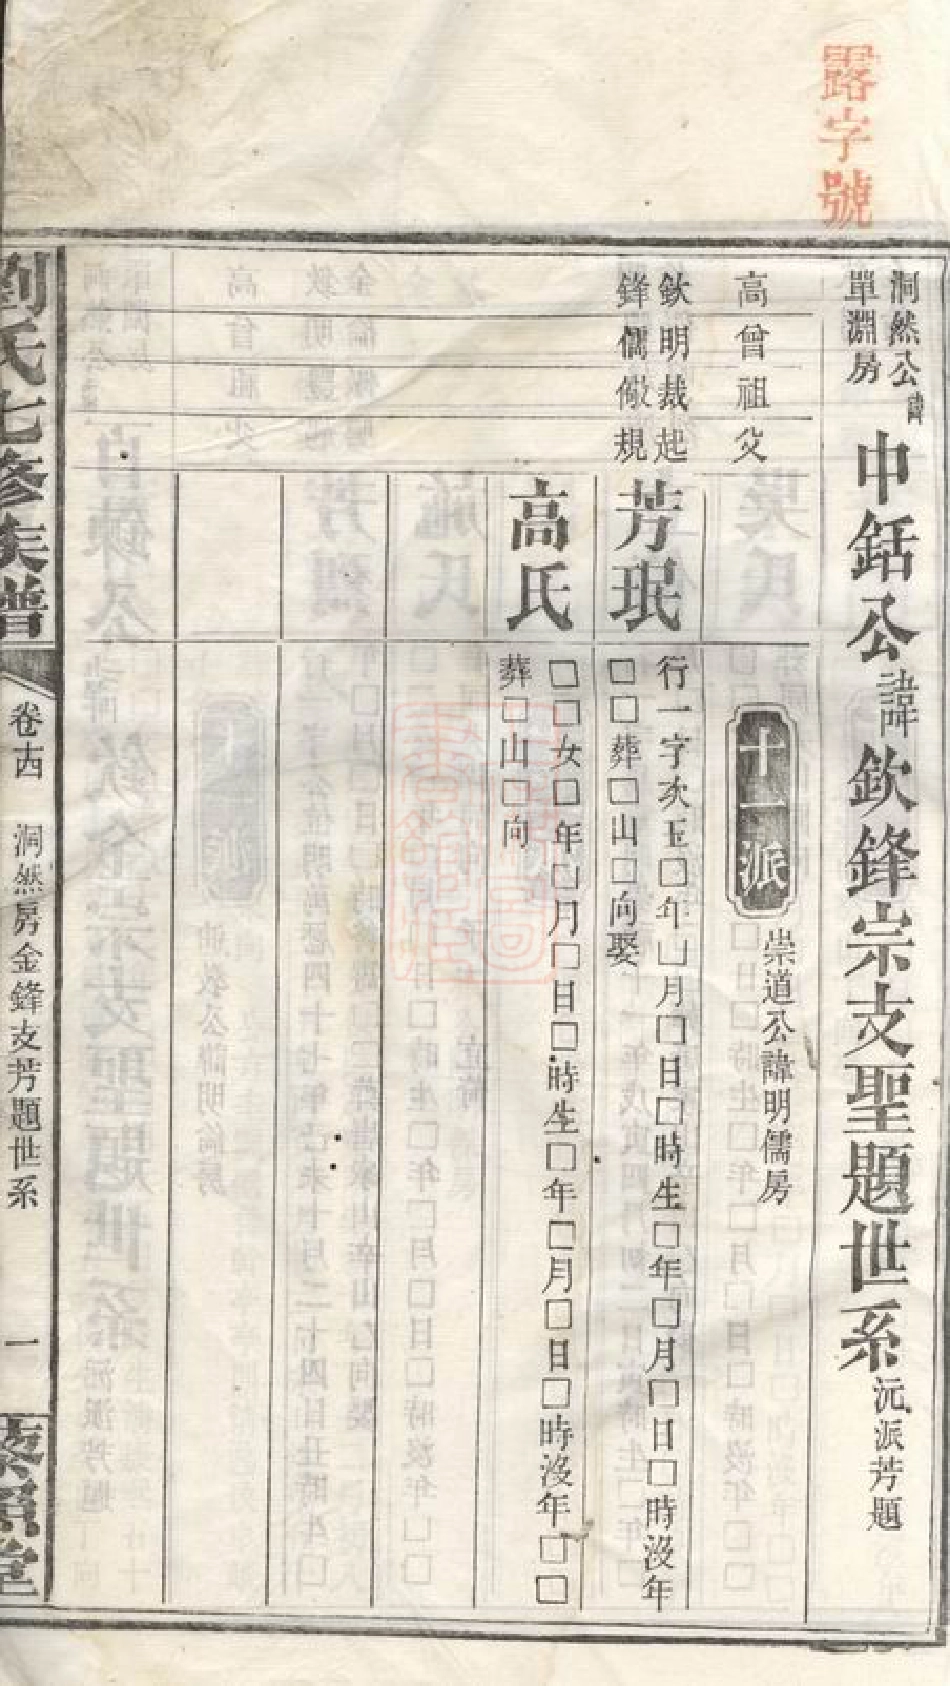 露字號
洞然公講
單淵房
申銛公諱欽鋒宗支聖題世系沅派芳題
高曾祖父
十一派
崇道公諱明儒房
欽明裁起
鋒儒儆規
芳珉
行一字次玉□年□月□日□時生□年□月□日□時沒年
□□葬□山□向娶
高氏
□□女□年□月□日□時生□年□月□日□時沒年□□
葬□山□向
劉氏七修族譜
卷十四
洞然房金鋒支芳題世系
一
藜照堂